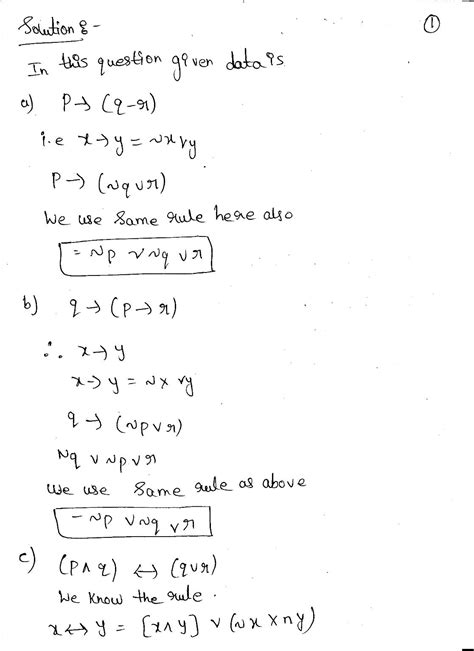 Solution :-
①
In this question given data is
a) P → (q-r)
i.e x → y = ~x v y
P → (~q v r)
We use same rule here also
= ~p v ~q v r
b) q → (p → r)
∴ x → y
x → y = ~x v y
q → (~p v r)
~q v ~p v r
We use same rule as above
- ~p v ~q v r
c) (p ∧ q) ↔ (q v r)
We know the rule.
x ↔ y = [x ∧ y] v (~x x n y)